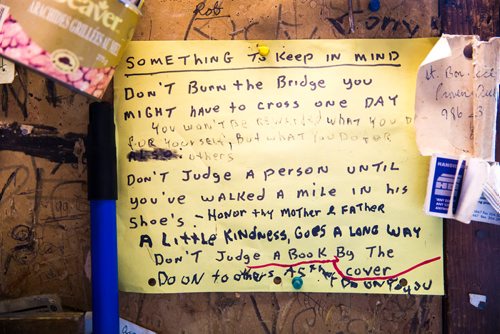 Rob
Tony
eaver
ARACHIDES GRILLÉES AU MIEL
SOMETHING To Keep IN MIND
DON'T BURN the BRIDGE you
MIGHT HAVE to CROSS ONE DAY
YOU WON'T BE REWARDED WHAT YOU D
FOR YOURSELF, But WHAT YOU DO FOR
others
DON'T JUDGE A PERSON UNTIL
you've WALKED A MILE IN his
Shoe's - HONOR thy MOTHER & FATHER
A LITTLE KINDNESS, GOES A LONG WAY
DON'T JUDGE A BOOK By The
cover
Do ON to others AS they
Do ON YOU
Lt. Bou
986-3
HAND